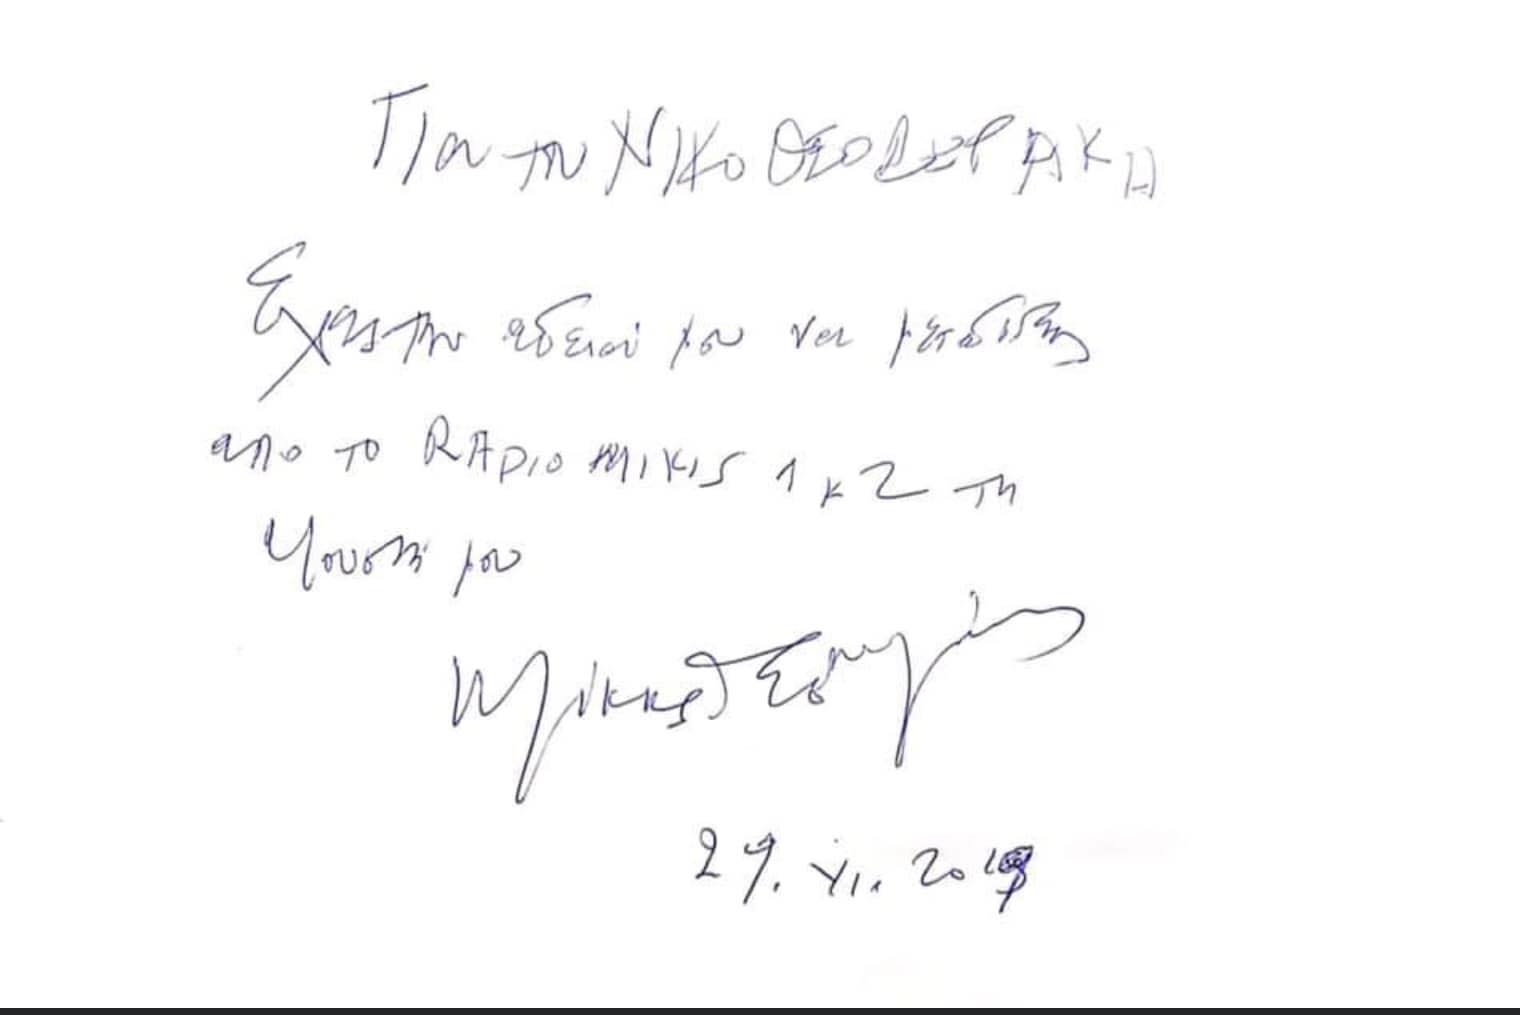 Για τη ΝΙΚΟ ΘΕΟΔΩΡΑΚΗ
Εχεις την αδεια μου να μεταδιδεις
απο το RADIO MIKIS 1 κ 2 τη
Μουσική μου
Μίκης Θεοδωράκης
29. XI. 2019